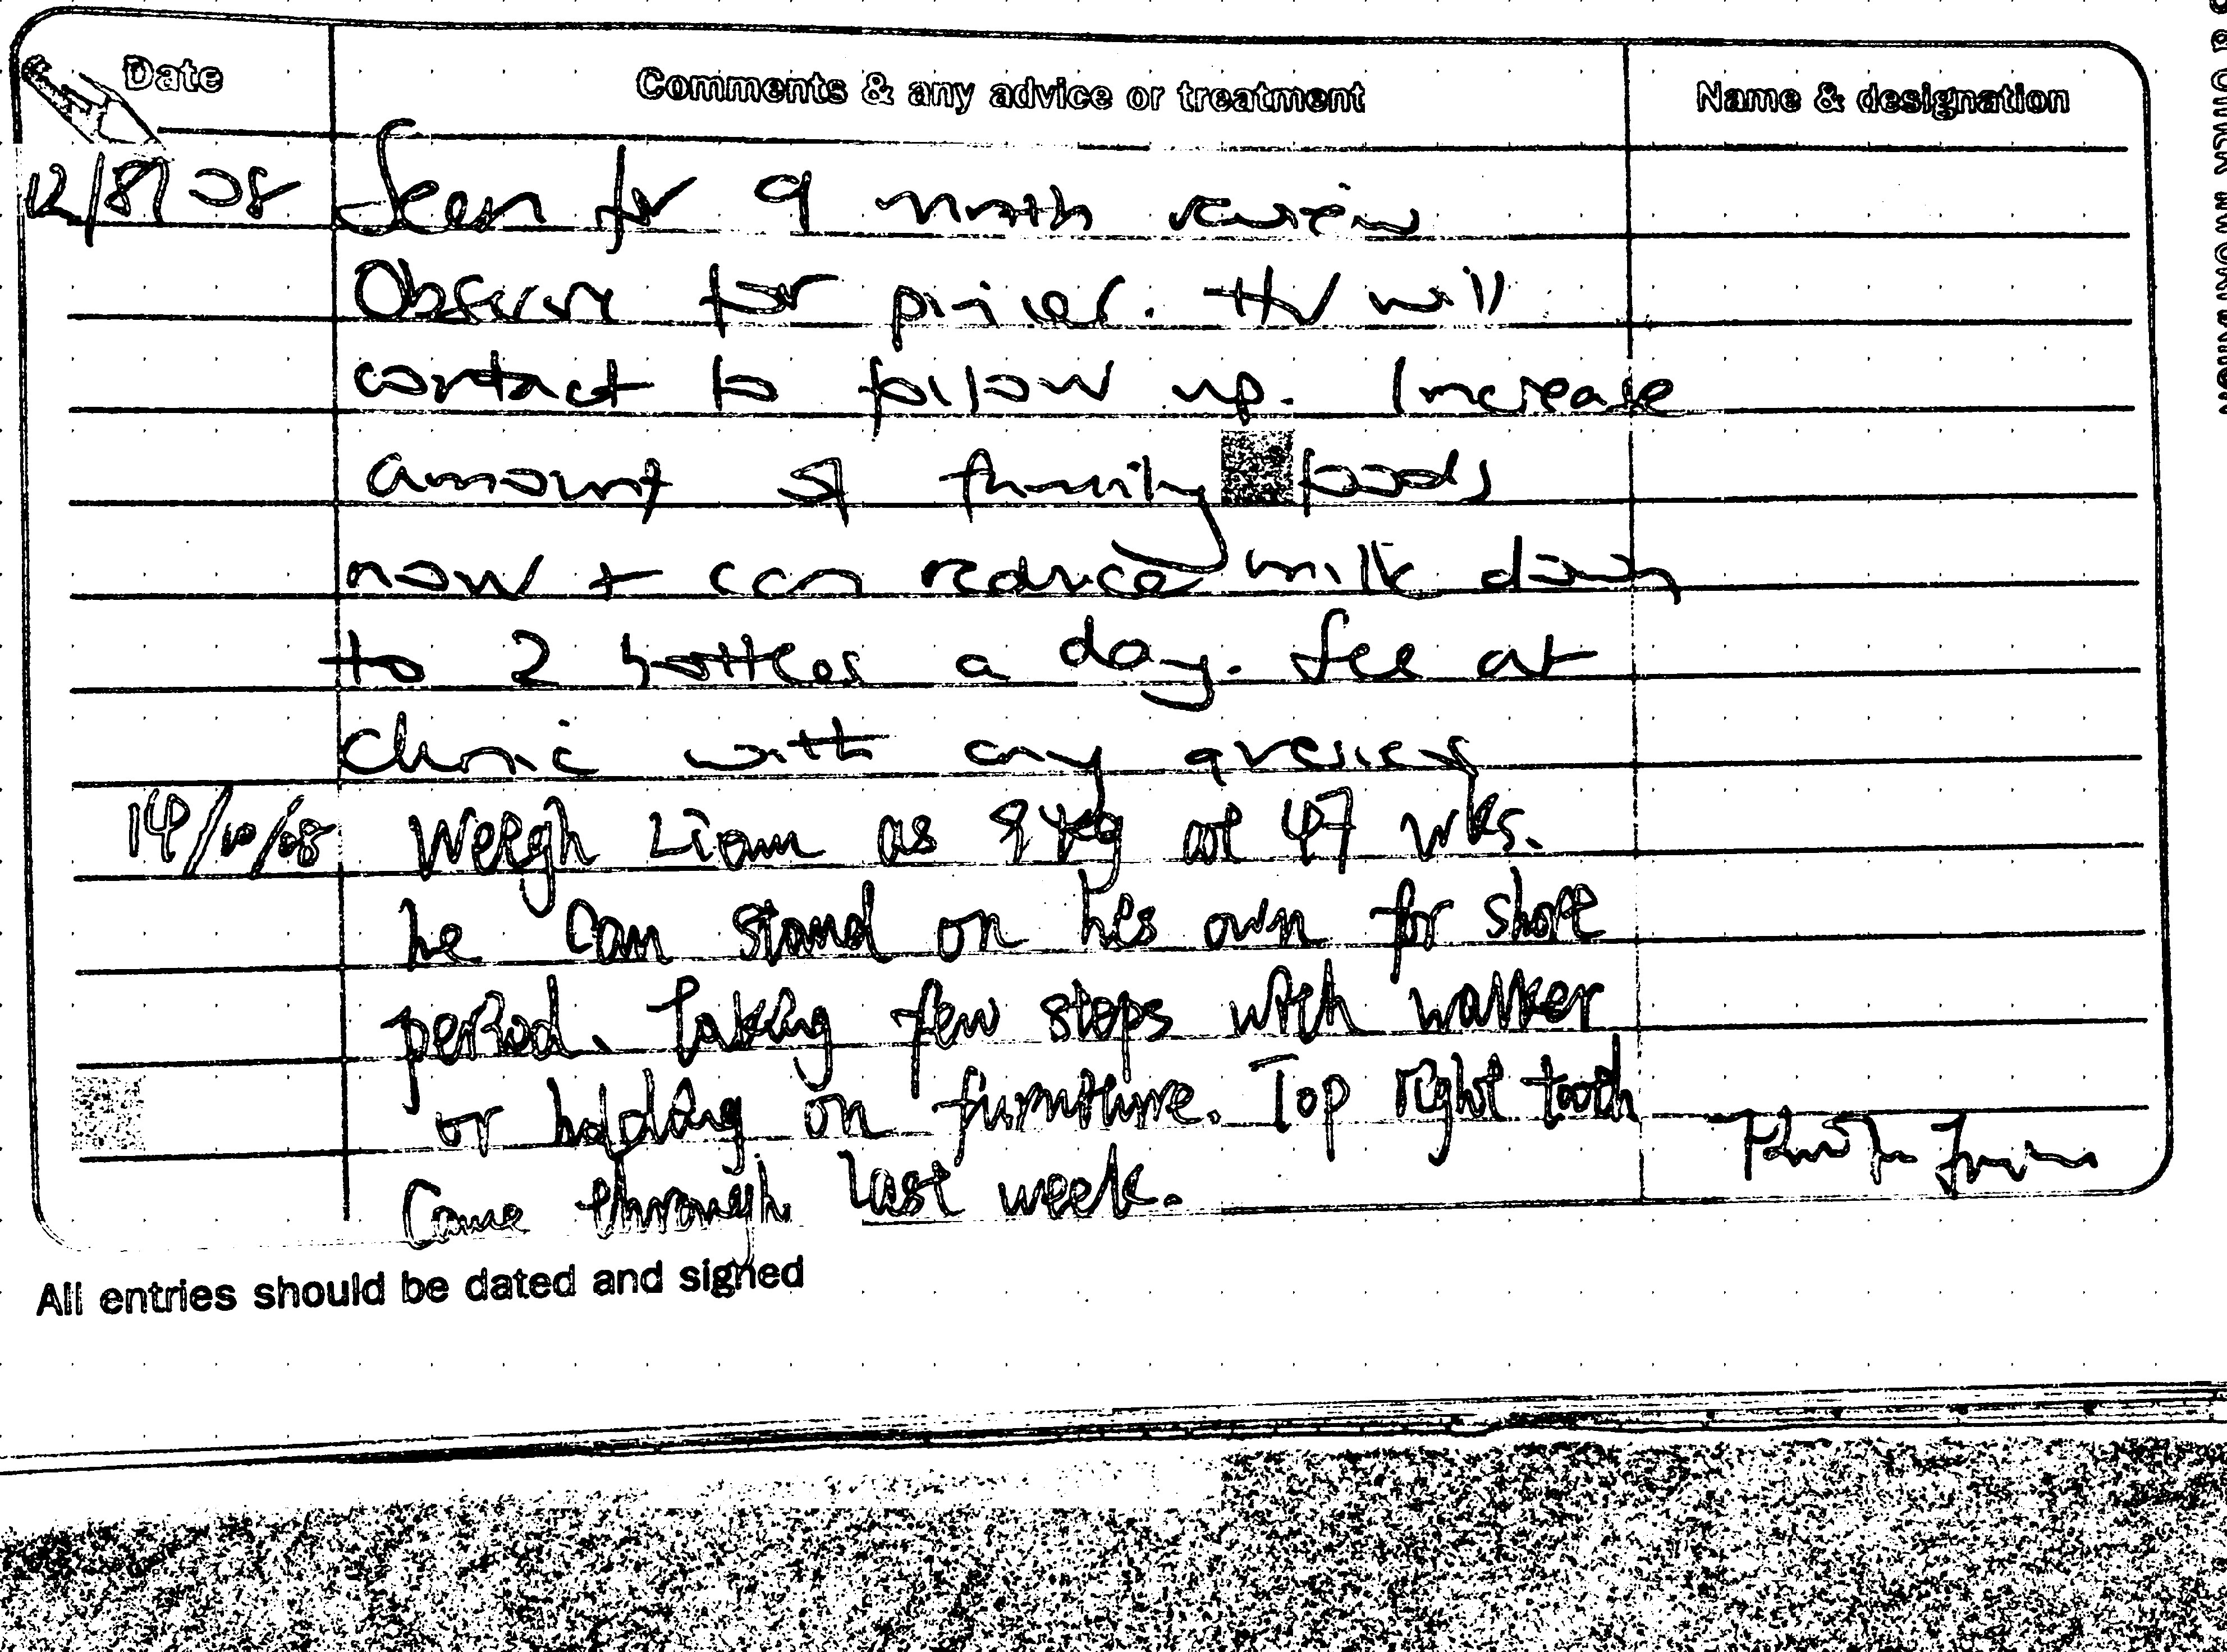 Date Comments & any advice or treatment Name & designation
12/8/08 Seen for 9 month review
Observe for pincer. HV will
contact to follow up. Increase
amount of family foods
now + can reduce milk down
to 2 bottles a day. See at
clinic with any queries
14/10/08 Weigh Liam as 9 kg at 47 wks.
he can stand on his own for short
period. Taking few steps with walker
or holding on furniture. Top right tooth
Come through last week.
All entries should be dated and signed